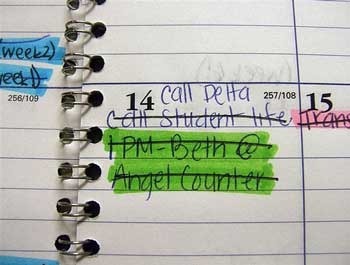 (week 2)
week 1)
256/109
14 Call Delta 257/108 15
Call Student life
Trans
1 PM-Beth @
Angel Counter